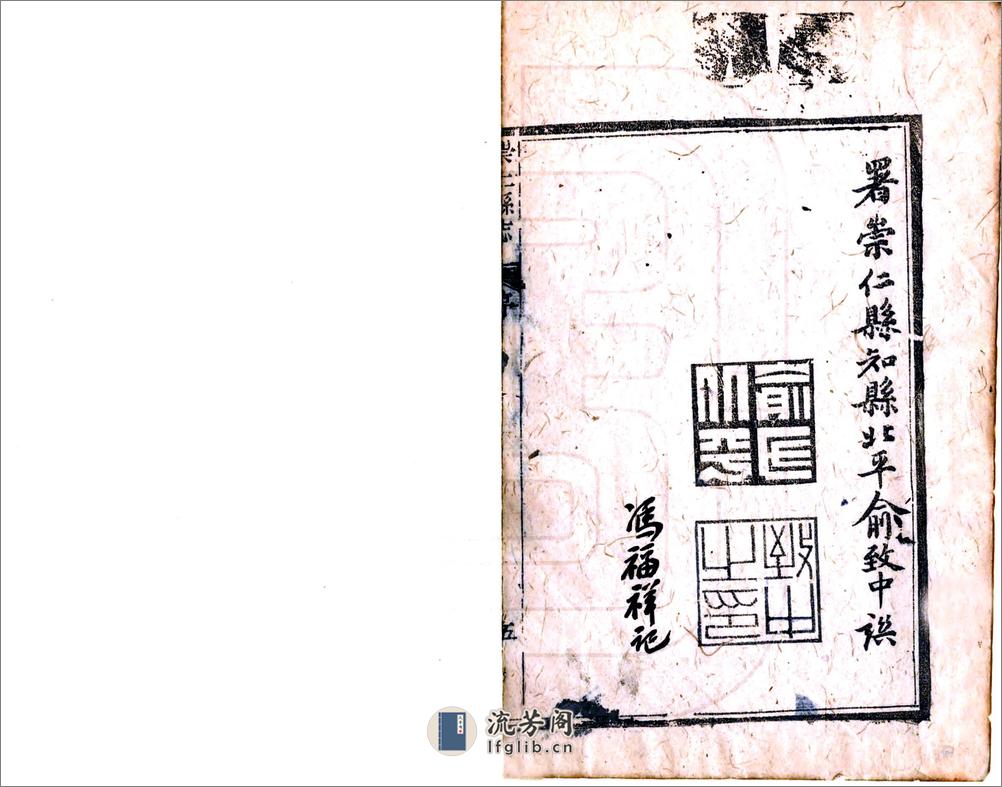 署崇仁縣知縣北平俞致中譔
致中之印
馮福祥記
崇仁縣志
五
流芳阁
lfglib.cn